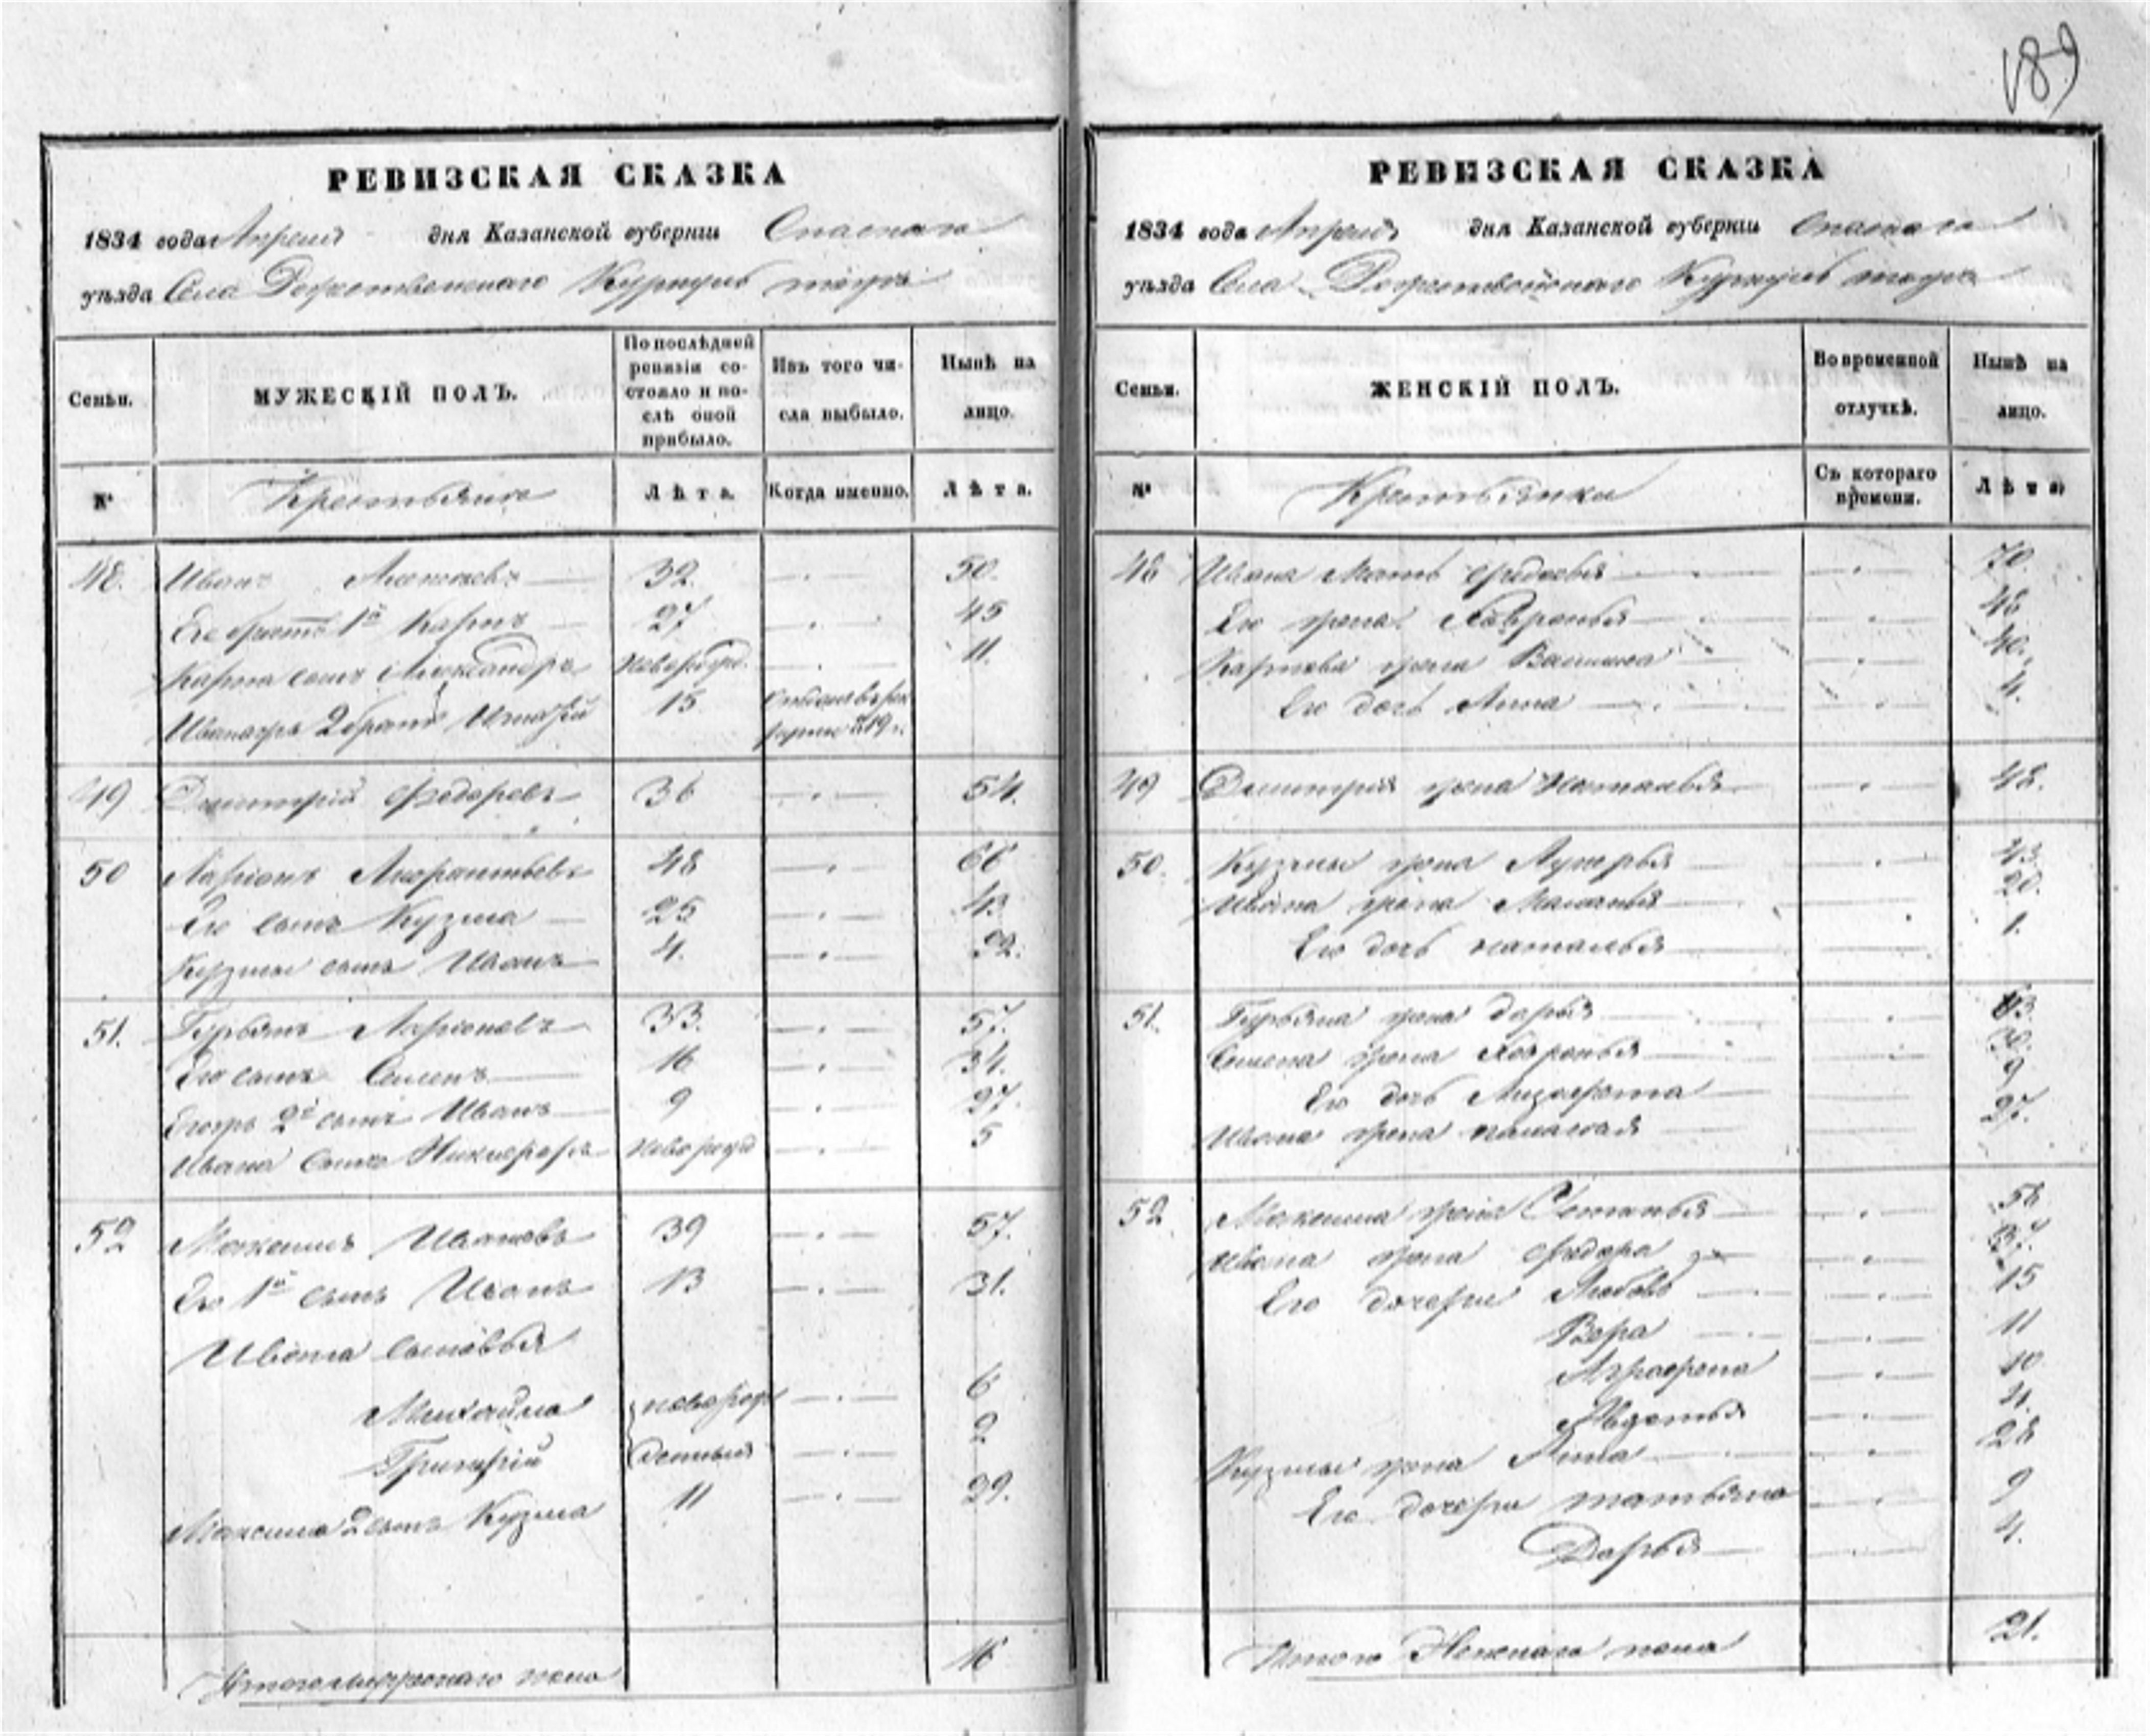 189
РЕВИЗСКАЯ СКАЗКА
1834 года Апреля дня Казанской губернiи Спаскаго
уѣзда Села Рожественскаго тожъ
Семьи.
МУЖЕСКIЙ ПОЛЪ.
По послѣдней ревизiи состояло и послѣ оной прибыло.
Изъ того числа выбыло.
Нынѣ на лицо.
№
Крестьяне
Лѣта.
Когда именно.
Лѣта.
48. Иванъ 32. 50.
Его братъ 1й Карпъ 27 45
Карпа сынъ Александръ новорожд. 11.
Ивана 2 братъ 15 819
49 Дмитрiй Федоровъ 36 54.
50 Ларiонъ 48 66
Его сынъ Кузма 25 43
Кузмы сынъ Иванъ 4. 22.
51. Гурьянъ Ларiоновъ 33. 57.
Его сынъ Семенъ 16 34.
2й сынъ Иванъ 9 27.
Ивана сынъ Никифоръ новорожд 5
52 Максимъ Ивановъ 39 57.
Его 1й сынъ Иванъ 13 31.
Ивана сыновья
Михайла новорож 6
Григорiй денныя 2
Максима 2 сынъ Кузма 11 29.
Итого мужескаго пола 16
РЕВИЗСКАЯ СКАЗКА
1834 года Апреля дня Казанской губернiи Спаскаго
уѣзда Села Рожественскаго тожъ
Семьи.
ЖЕНСКIЙ ПОЛЪ.
Во временной отлучкѣ.
Нынѣ на лицо.
№
Крестьянки
Съ котораго времени.
Лѣта
48 Ивана Мать Федосья 70.
Его жена Хавронья 48
Карпова жена Василиса 40.
Его дочь Анна 4.
49 Дмитрiя жена Наталья 48.
50. Кузмы жена Лукерья 43.
Ивана жена Маланья 20.
Его дочь наталья 1.
51. Гурьяна жена дарья 63.
Семена жена Хавронья 30.
Его дочь 9
Ивана жена пелагея 27.
52 Максима жена 56
Ивана жена Федора 37.
Его дочери Любовь 15
Вера 11
Аграфена 10
Авдотья 4.
Кузмы жена Анна 28
Его дочери татьяна 9
Дарья 4.
Итого Женскаго пола 21.